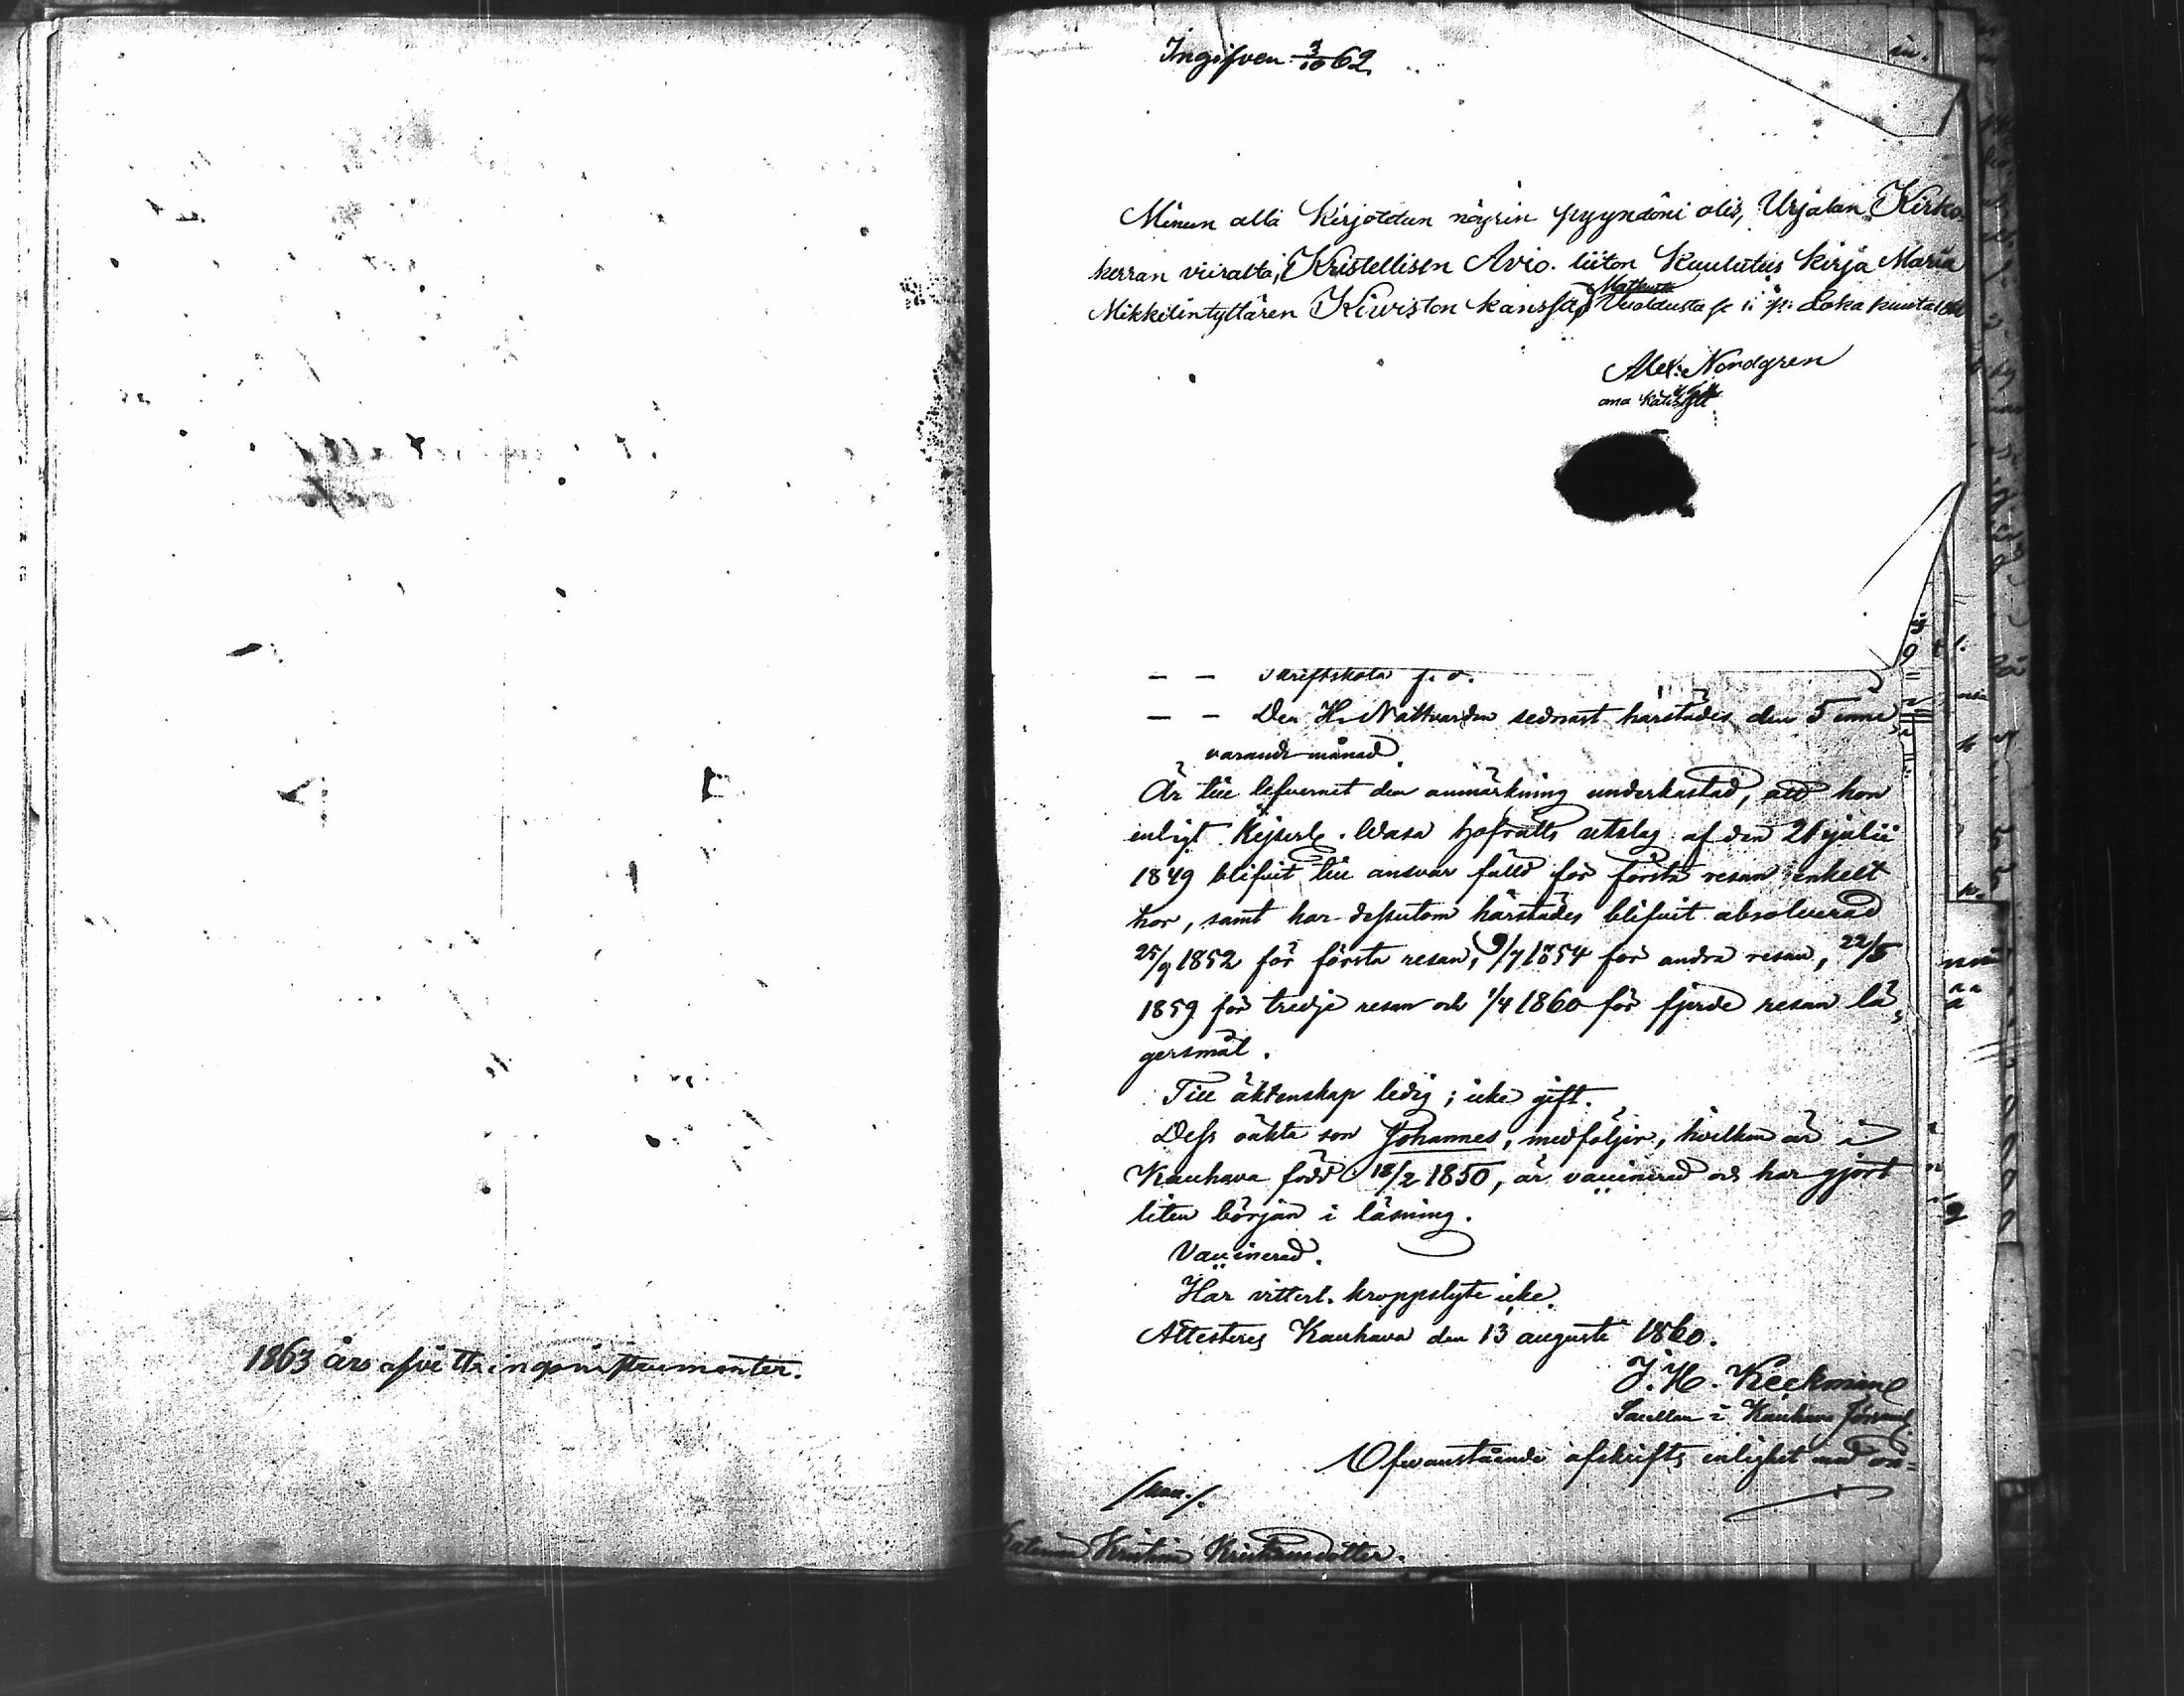 1863 års afvittringsinstrumenter.
Ingifven 3/10 62.
Minun alla Kirjoidun nöyrin pyyndöni olis, Urjalan Kirko-
herran viiralta, Kristellisen Avio. liiton Kuulutus kirja Maria
Mikkelintyttären Kiviston kanssa,
Alex: Nordgren
Skriftskola f. o.
Den H. Nattvarden sednast härstädes den 5 inne
varande månad.
Är till lefvernet den anmärkning underkastad, att hon
enligt Kejserl. Wasa Hofrätts utslag af den 21 julii
1849 blifvit till ansvar fälld för första resan enkelt
hor, samt har dessutom härstädes blifvit absolverad
25/9 1852 för första resan, 9/7 1854 för andra resan, 22/5
1859 för tredje resan och 1/4 1860 för fjerde resan lä-
gersmål.
Till äktenskap ledig; icke gift.
Dess oäkta son Johannes, medföljer, hvilken är i
Kauhava född 18/2 1850, är vaccinerad och har gjort
liten början i läsning.
Vaccinerad.
Har vitterl. kroppslyte icke.
Attesteres Kauhava den 13 augusti 1860.
J. H. Keckman
i Kauhava
Ofvanstående afskrifts enlighet med
Kristina